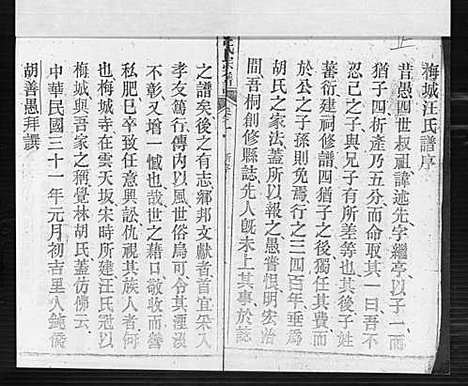 梅城汪氏譜序
昔愚四世叔祖諱述先字繼亭以子一而
猶子四析產乃五分而五一曰吾不
忍己之子與兄子有所差等也以故胡姓
蕃衍建祠修譜四猶子之後獨任其費而
於公之子孫則免焉行之三四百年垂爲
胡氏之家法蓋所以報之愚嘗恨明宏治
間吾桐創修縣誌先人旣未上其事於誌
之譜矣後之有志鄉邦文獻者首宜采入
孝友篤行傳內以風世俗烏可令其湮沒
不彰又增一憾也哉世之藉口敬收而營
私肥己卒致任意興訟仇視其族人者何
也梅城寺在雲天坂宋時建汪氏冠以
梅城與吾家之稱覺林胡氏蓋仿佛云
中華民國三十一年元月初吉里人鈍儕
胡善愚拜譔